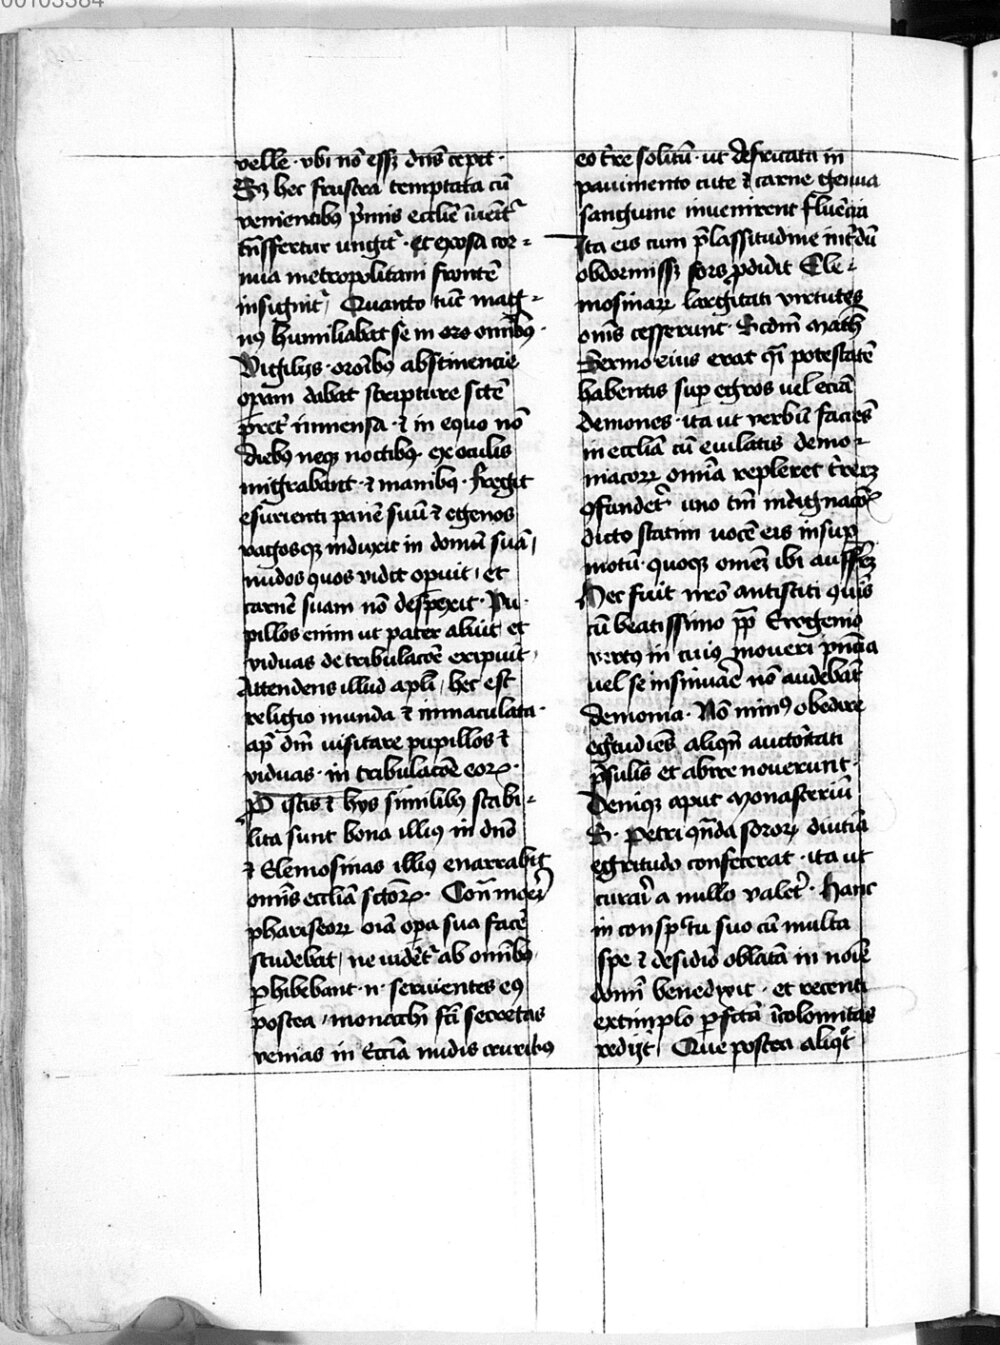 00103384
velle · vbi nō essꝫ dn̄s cepet ·
Sꝫ hec frustra temptata cū
venientibꝰ p̄mis ecclie īuēit᷑
trāsfertur ungit᷑ · et exposa cor=
nua metropolitani frontē
insignit᷑ Quanto tūc mag=
nꝰ humiliabat se in oro omībꝰ ·
Vigilijs · oronibꝰ abstinencie
opam dabat scripture sctē
p̄ret᷑ immensa · ⁊ in equo nō
diebꝰ neqꝫ noctibꝰ · ex oculis
migrabant · ⁊ manibꝰ · fregit
esurienti panē suū ⁊ egenos
vagosqꝫ induxit in domū suā /
nudos quos vidit opuit / et
carnē suam nō despexit · Pu
pillos enim ut pater aluit et
viduas de tribulacōe eripuit /
Attendens illud apli / hec est
religio munda ⁊ immaculata ·
ap̄ dm̄ visitare pupillos ⁊
viduas · in tribulacōe eoꝝ ·
P istis ⁊ hijs similibꝰ stabi=
lita sunt bona illiꝰ in dn̄o
⁊ Elemosinas illiꝰ enarrabit
omīs ecclia sctoꝝ · Con̄
phariseoꝝ oīa opa sua facē
studebat / ne videt᷑ ab omībꝰ
ꝓhibebant · n · seruientes eꝰ
postea / monachi fcī secretas
venias in Eccīa nudis cruribꝰ
eo t̄re solitū · ut defricata in
pauimento cute ⁊ carne genua
sanguine invenirent fluēcia
Ita eis cum p̄ lassitudine int̄dū
obdormissꝫ sors ꝓdidit Ele=
mosinaꝝ largitati virtutes
om̄s cesserunt · Scdm̄ Math̄
Sermo eius erat qī potestatē
habentis sup egros uel eciā
demones · ita ut verbū faciēs
in ecclīa cū eiulatis demo=
niacoꝝ omīa repleret t̄rerꝫ
ꝯfundet᷑ uno tm̄ indignacōis
dicto statim vocē eis insup
motū · quoqꝫ omēꝫ ibi auffērꝫ
Hec fuit nr̄o antistiti quīs
cū beatissimo pp̄ Erogenio
vertꝰ in cuiꝰ moueri pn̄cia
uel se insinuāe nō audebāt
demonia · Nō minꝰ obedire
egr̄tudiēs aliqn̄ auctoritati
p̄sulis et abire nouerunt ·
Deniqꝫ aput Monasteriū
S · Petri qn̄da sororꝫ diutīa
egritudo confecerat · ita ut
curari a nullo valet᷑ · Hanc
in conspectu suo cū multa
spe ⁊ desidīo oblatā in noīe
domī benedixit · et recenti
extimplo ꝑfcta īcolomitas
redijt · Que postea aliqͦt